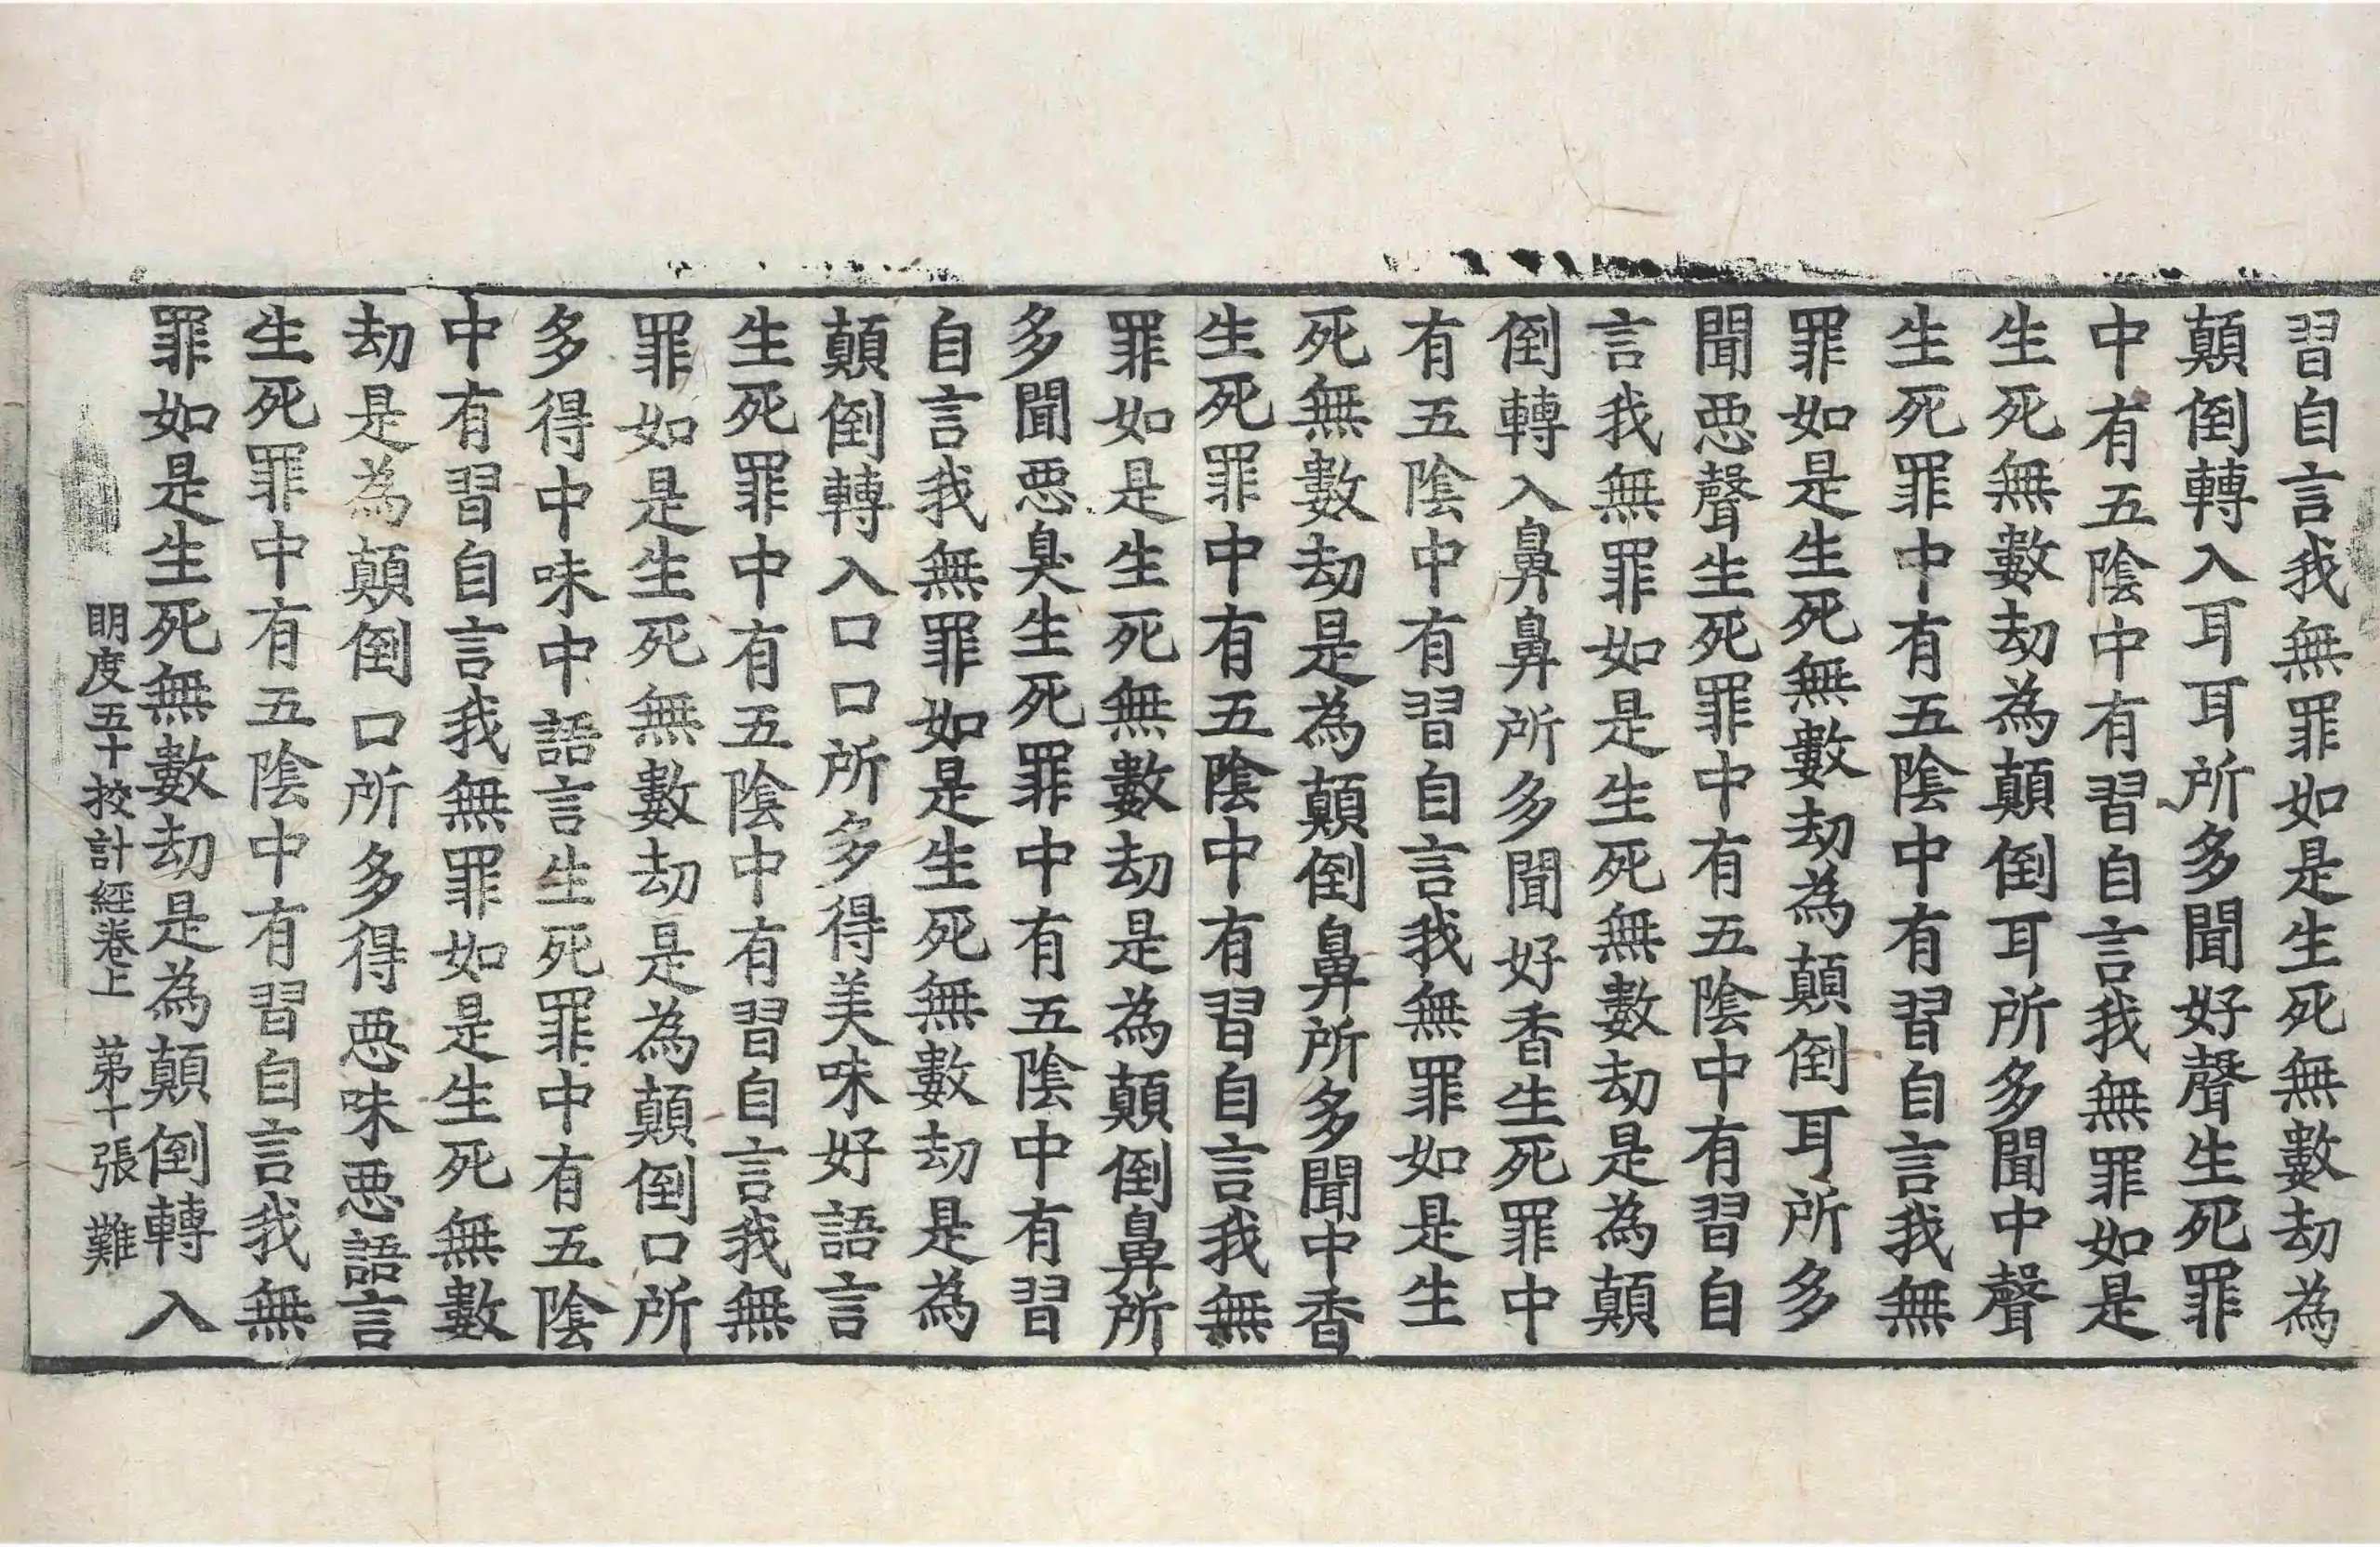 習自言我無罪如是生死無數劫為
顛倒轉入耳耳所多聞好聲生死罪
中有五陰中有習自言我無罪如是
生死無數劫為顛倒耳所多聞中聲
生死罪中有五陰中有習自言我無
罪如是生死無數劫為顛倒耳所多
聞惡聲生死罪中有五陰中有習自
言我無罪如是生死無數劫是為顛
倒轉入鼻鼻所多聞好香生死罪中
有五陰中有習自言我無罪如是生
死無數劫是為顛倒鼻所多聞中香
生死罪中有五陰中有習自言我無
罪如是生死無數劫是為顛倒鼻所
多聞惡臭生死罪中有五陰中有習
自言我無罪如是生死無數劫是為
顛倒轉入口口所多得美味好語言
生死罪中有五陰中有習自言我無
罪如是生死無數劫是為顛倒口所
多得中味中語言生死罪中有五陰
中有習自言我無罪如是生死無數
劫是為顛倒口所多得惡味惡語言
生死罪中有五陰中有習自言我無
罪如是生死無數劫是為顛倒轉入
明度五十挍計經卷上 苐十張 難